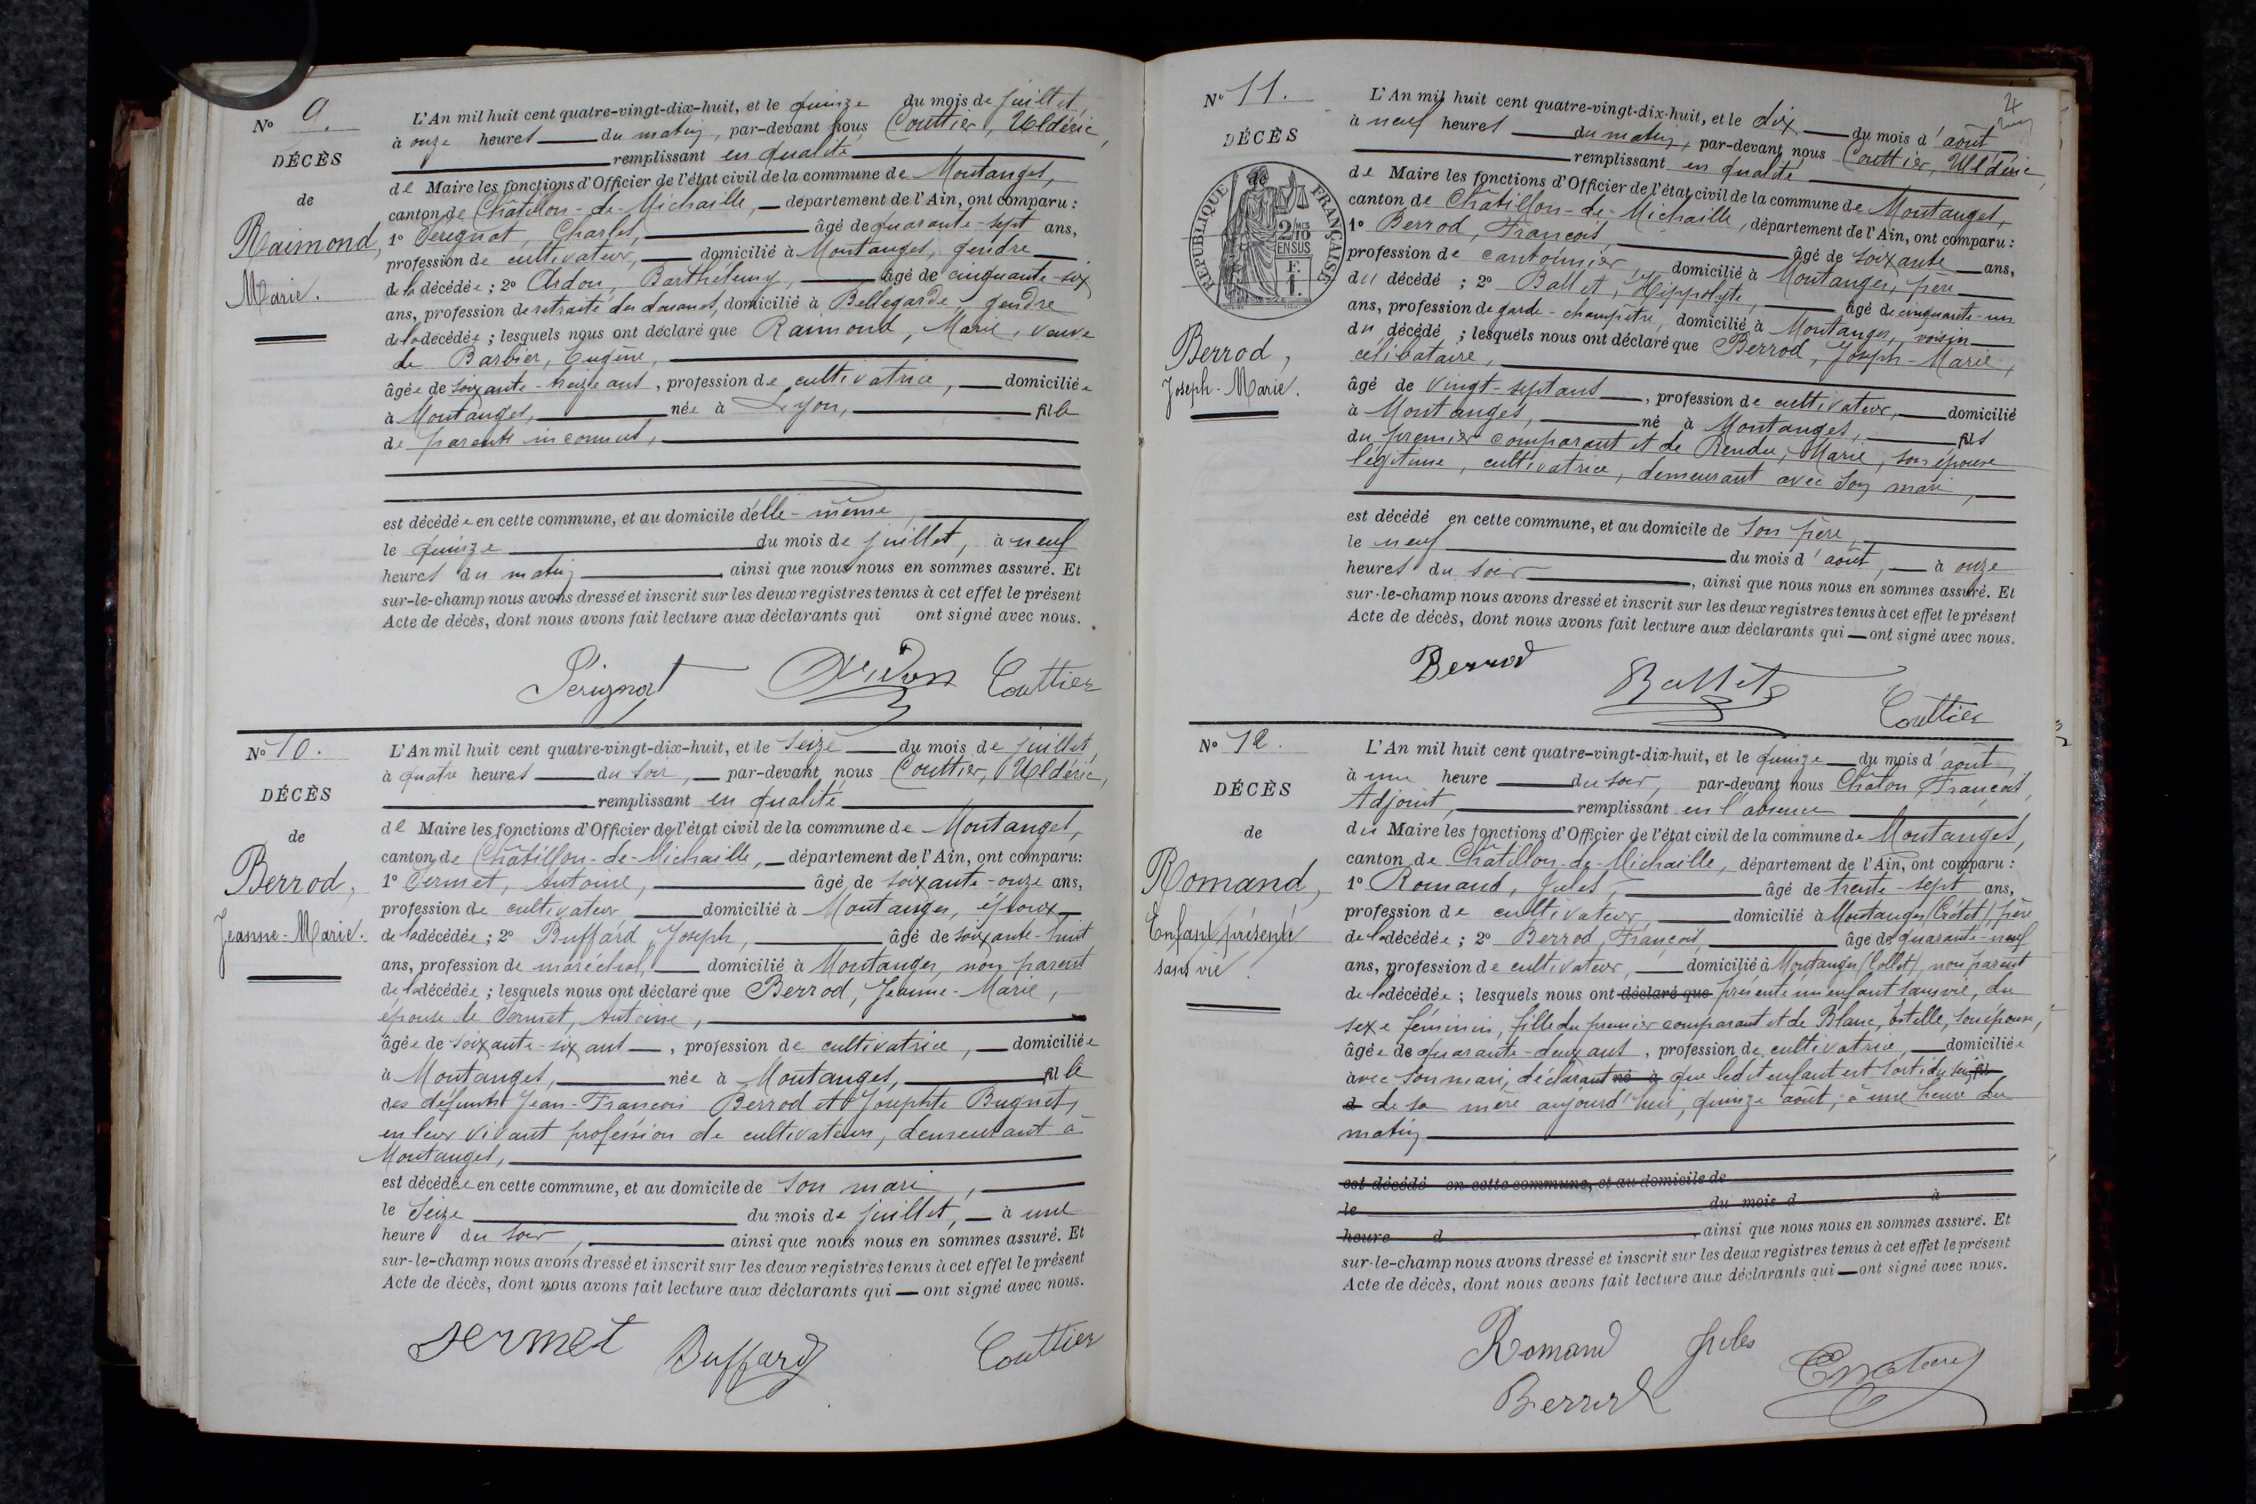 Nº 9.
DÉCÈS
de
Raimond,
Marie.
L'An mil huit cent quatre-vingt-dix-huit, et le quinze du mois de juillet,
à onze heures du matin, par-devant nous Couttier, Uldéric,
remplissant en qualité
de Maire les fonctions d'Officier de l'état civil de la commune de Montanges,
canton de Châtillon-de-Michaille, département de l'Ain, ont comparu :
1º Perignat, Charles, âgé de quarante-sept ans,
profession de cultivateur, domicilié à Montanges, gendre
de la décédée ; 2º Ardon, Barthélemy, âgé de cinquante-six
ans, profession de retraité des douanes, domicilié à Bellegarde, gendre
de la décédée ; lesquels nous ont déclaré que Raimond, Marie, veuve
de Barbier, Eugène,
âgée de soixante-treize ans, profession de cultivatrice, domiciliée
à Montanges, née à Lyon, fille
de parents inconnus,
est décédée en cette commune, et au domicile d'elle-même,
le quinze du mois de juillet, à neuf
heures du matin ainsi que nous nous en sommes assuré. Et
sur-le-champ nous avons dressé et inscrit sur les deux registres tenus à cet effet le présent
Acte de décès, dont nous avons fait lecture aux déclarants qui ont signé avec nous.
Perignat Ardon Couttier
Nº 10.
DÉCÈS
de
Berrod,
Jeanne-Marie.
L'An mil huit cent quatre-vingt-dix-huit, et le seize du mois de juillet,
à quatre heures du soir, par-devant nous Couttier, Uldéric,
remplissant en qualité
de Maire les fonctions d'Officier de l'état civil de la commune de Montanges,
canton de Châtillon-de-Michaille, département de l'Ain, ont comparu :
1º Sermet, Antoine, âgé de soixante-onze ans,
profession de cultivateur domicilié à Montanges, époux
de la décédée ; 2º Buffard, Joseph, âgé de soixante-huit
ans, profession de maréchal, domicilié à Montanges, non parent
de la décédée ; lesquels nous ont déclaré que Berrod, Jeanne-Marie,
épouse de Sermet, Antoine,
âgée de soixante-six ans, profession de cultivatrice, domiciliée
à Montanges, née à Montanges, fille
des défunts Jean-François Berrod et Josephte Bugnet,
en leur vivant profession de cultivateurs, demeurant à
Montanges,
est décédée en cette commune, et au domicile de son mari,
le seize du mois de juillet, à une
heure du soir, ainsi que nous nous en sommes assuré. Et
sur-le-champ nous avons dressé et inscrit sur les deux registres tenus à cet effet le présent
Acte de décès, dont nous avons fait lecture aux déclarants qui ont signé avec nous.
Sermet Buffard Couttier
4
Nº 11.
DÉCÈS
RÉPUBLIQUE FRANÇAISE
2/10
EN SUS
Berrod,
Joseph-Marie.
L'An mil huit cent quatre-vingt-dix-huit, et le dix du mois d'août
à neuf heures du matin, par-devant nous Couttier, Uldéric,
remplissant en qualité
de Maire les fonctions d'Officier de l'état civil de la commune de Montanges,
canton de Châtillon-de-Michaille, département de l'Ain, ont comparu :
1º Berrod, François, âgé de soixante ans,
profession de cantonnier, domicilié à Montanges, père
du décédé ; 2º Ballet, Hippolyte, âgé de cinquante-un
ans, profession de garde-champêtre, domicilié à Montanges, voisin
du décédé ; lesquels nous ont déclaré que Berrod, Joseph-Marie,
célibataire,
âgé de vingt-sept ans, profession de cultivateur, domicilié
à Montanges, né à Montanges, fils
du premier comparant et de Rendu, Marie, son épouse
légitime, cultivatrice, demeurant avec son mari,
est décédé en cette commune, et au domicile de son père,
le neuf du mois d'août, à onze
heures du soir, ainsi que nous nous en sommes assuré. Et
sur-le-champ nous avons dressé et inscrit sur les deux registres tenus à cet effet le présent
Acte de décès, dont nous avons fait lecture aux déclarants qui ont signé avec nous.
Berrod Ballet Couttier
Nº 12.
DÉCÈS
de
Romand,
Enfant présenté
sans vie.
L'An mil huit cent quatre-vingt-dix-huit, et le quinze du mois d'août,
à une heure du soir, par-devant nous Chaton, François,
Adjoint, remplissant en l'absence
du Maire les fonctions d'Officier de l'état civil de la commune de Montanges,
canton de Châtillon-de-Michaille, département de l'Ain, ont comparu :
1º Romand, Jules, âgé de trente-sept ans,
profession de cultivateur, domicilié à Montanges (Crêtet) père
de la décédée ; 2º Berrod, François, âgé de quarante-neuf
ans, profession de cultivateur, domicilié à Montanges (Collet), non parent
de la décédée ; lesquels nous ont déclaré que présenté un enfant sans vie, du
sexe féminin, fille du premier comparant et de Blanc, Estelle, son épouse,
âgée de quarante-deux ans, profession de cultivatrice, domiciliée
avec son mari, déclarant né à que ledit enfant est sorti du sein fil
d de sa mère aujourd'hui, quinze août, à une heure du
matin
est décédé en cette commune, et au domicile de
le du mois d à
heure d, ainsi que nous nous en sommes assuré. Et
sur-le-champ nous avons dressé et inscrit sur les deux registres tenus à cet effet le présent
Acte de décès, dont nous avons fait lecture aux déclarants qui ont signé avec nous.
Romand Jules
Berrod